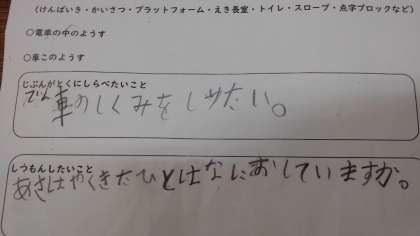 （けんばいき・かいさつ・プラットフォーム・えき長室・トイレ・スロープ・点字ブロックなど）
○電車の中のようす
○車このようす
じぶんがとくにしらべたいこと
でん車のしくみをしりたい。
しつもんしたいこと
あさはやくきたひとはなにおしていますか。